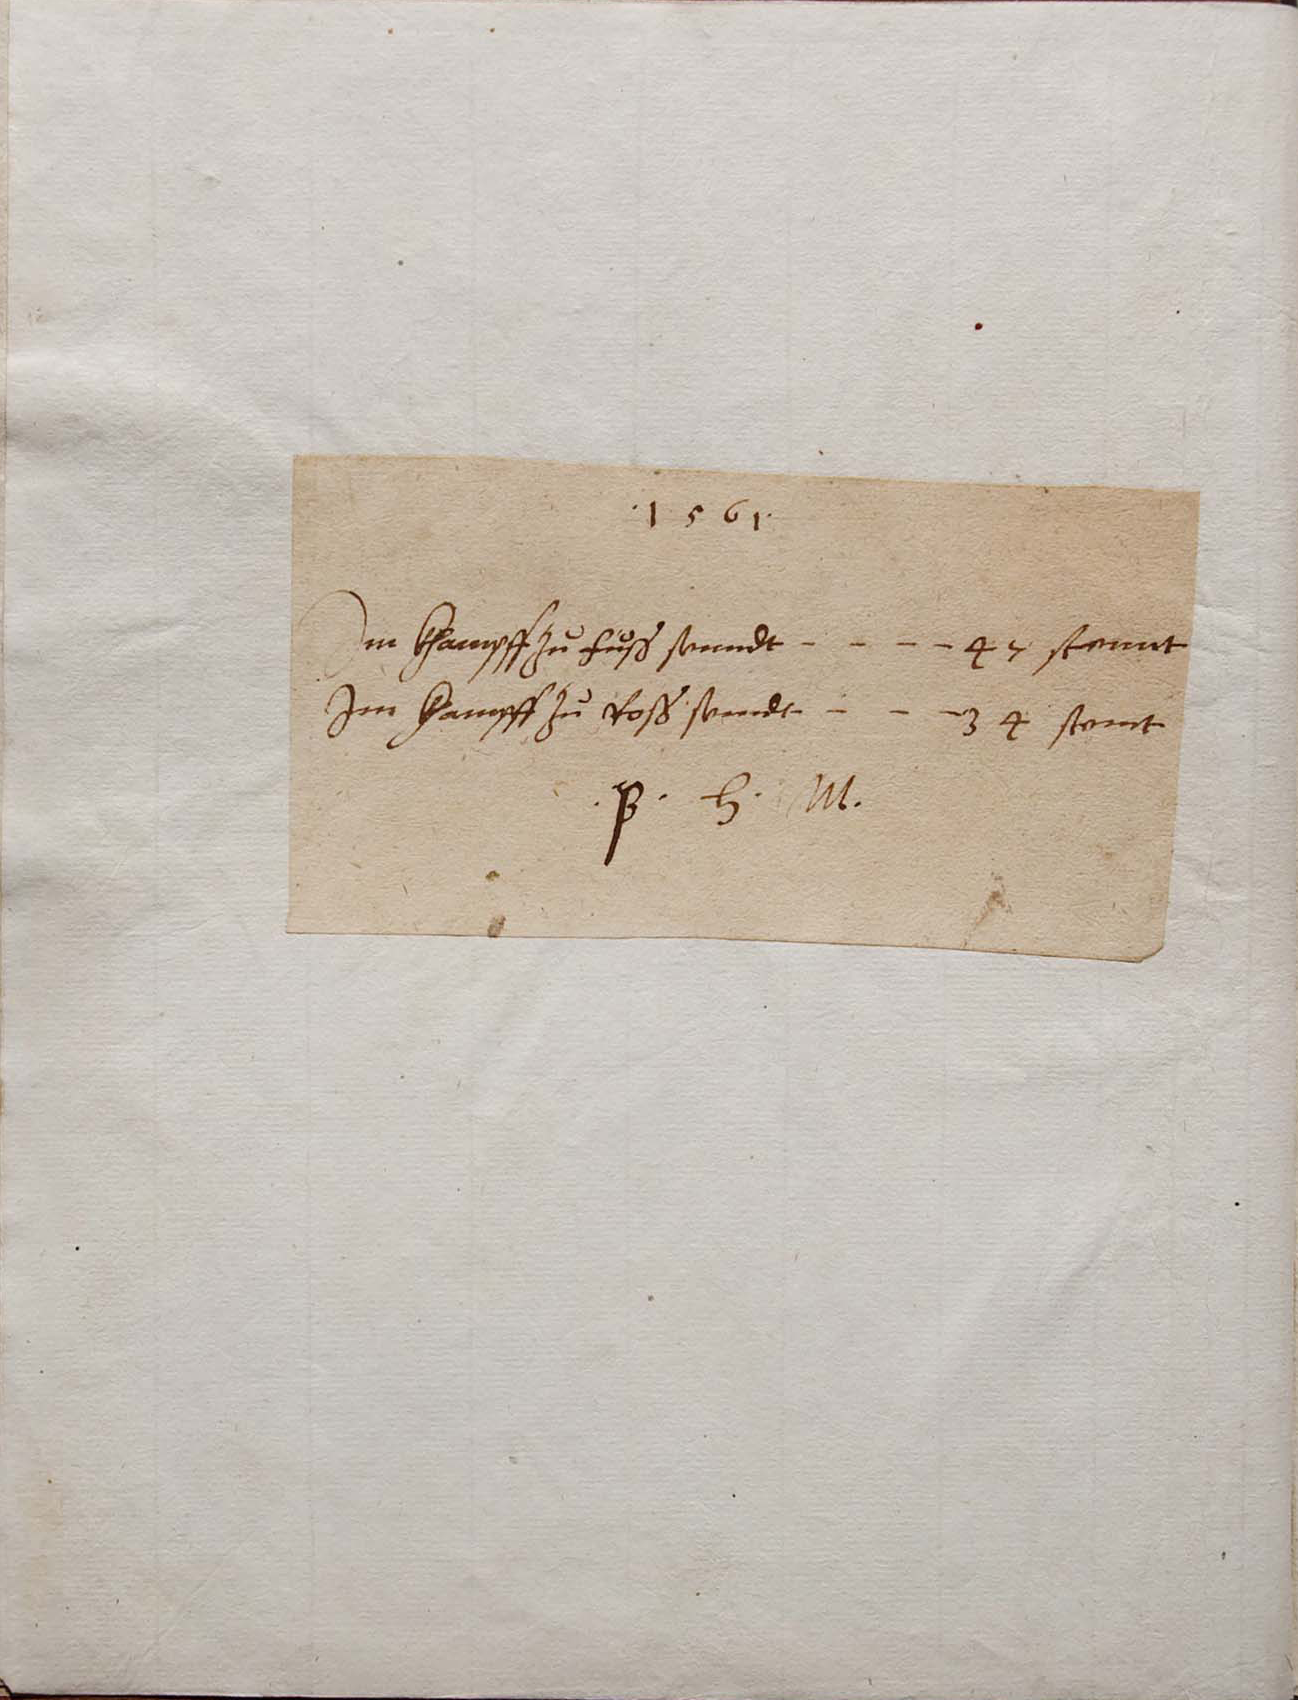 ·1561·
Im Khampff zu fuͦss senndt - - - - 47 stennt
Im Kampff zu Ross sendt - - - 34 stent
. P . H . M.